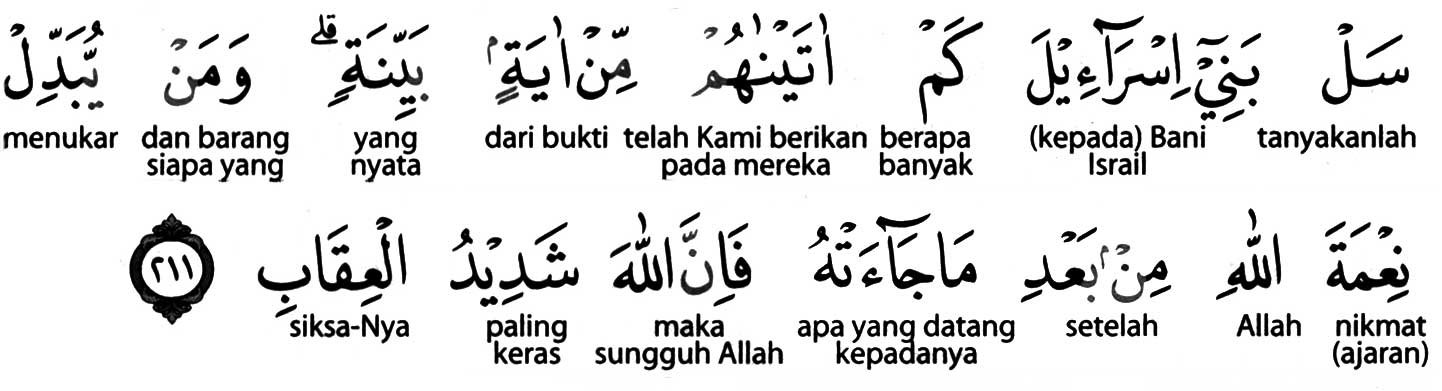 سَلْ بَنِيْٓ اِسْرَاۤءِيْلَ كَمْ اٰتَيْنٰهُمْ مِّنْ اٰيَةٍ ۢ بَيِّنَةٍ ۗ وَمَنْ يُّبَدِّلْ
tanyakanlah (kepada) Bani Israil berapa banyak telah Kami berikan pada mereka dari bukti yang nyata dan barang siapa yang menukar
نِعْمَةَ اللّٰهِ مِنْۢ بَعْدِ مَا جَاۤءَتْهُ فَاِنَّ اللّٰهَ شَدِيْدُ الْعِقَابِ ٢١١
nikmat (ajaran) Allah setelah apa yang datang kepadanya maka sungguh Allah paling keras siksa-Nya